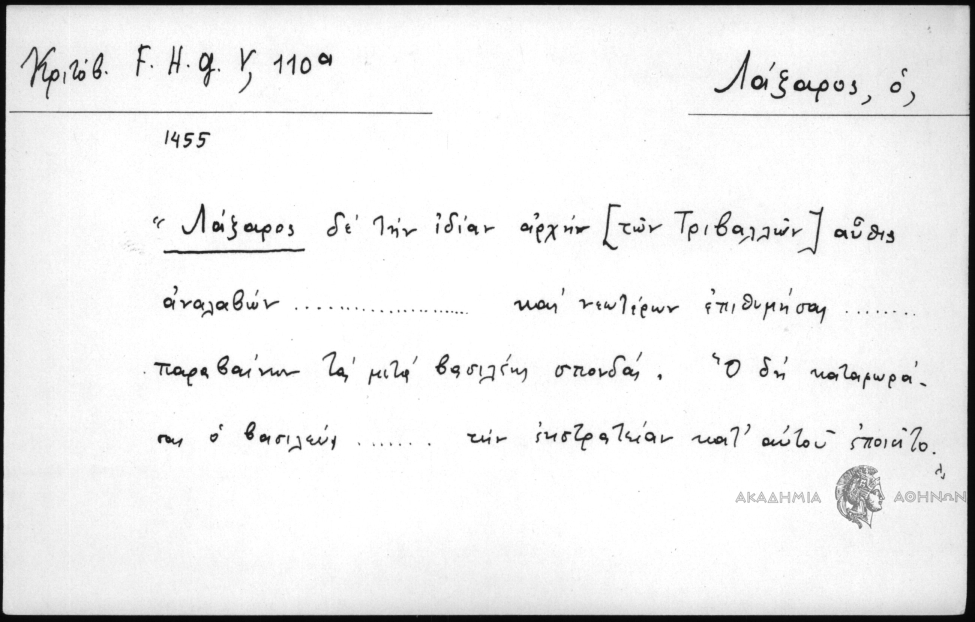 Κριτόβ. F. H. g. V, 110ᵃ
Λάζαρος, ὁ,
1455
“ Λάζαρος δὲ τὴν ἰδίαν ἀρχὴν [τῶν Τριβαλλῶν] αὖθις
ἀναλαβὼν .................... καὶ νεωτέρων ἐπιθυμήσας ........
παραβαίνων τὰς μετὰ βασιλέως σπονδάς. Ὁ δὴ καταμωρά-
σας ὁ βασιλεὺς ........ τὴν ἐκστρατείαν κατ’ αὐτοῦ ἐποιεῖτο.
ΑΚΑΔΗΜΙΑ ΑΘΗΝΩΝ